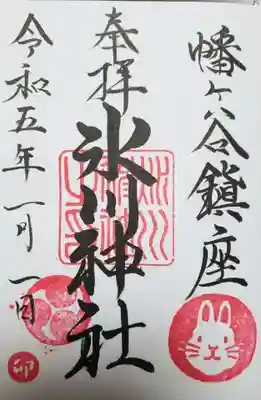 幡ヶ谷鎮座
奉拝
氷川神社
令和五年一月一日
卯